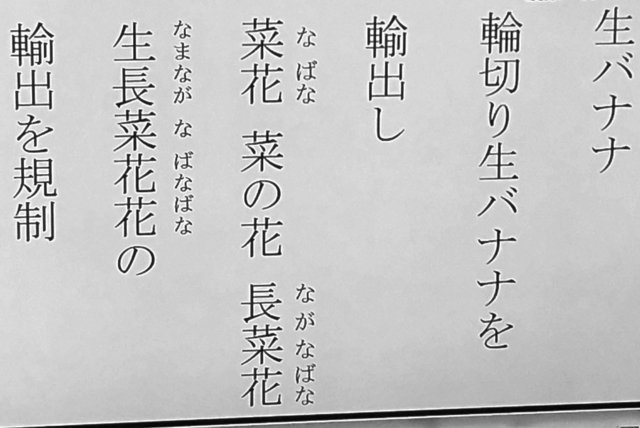 生バナナ
輪切り生バナナを
輸出し
なばな ながなばな
菜花 菜の花 長菜花
なまながなばなばな
生長菜花花の
輸出を規制